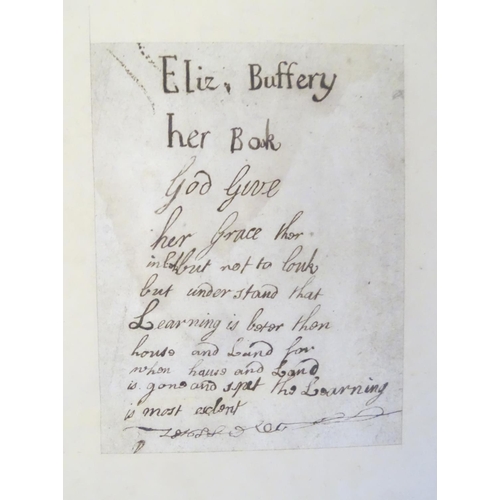 Eliz. Buffery
her Book
God Give
her Grace ther
in but not to louk
but under stand that
Learning is beter then
house and Land for
when hause and Land
is gone and spet the Learning
is most exlent